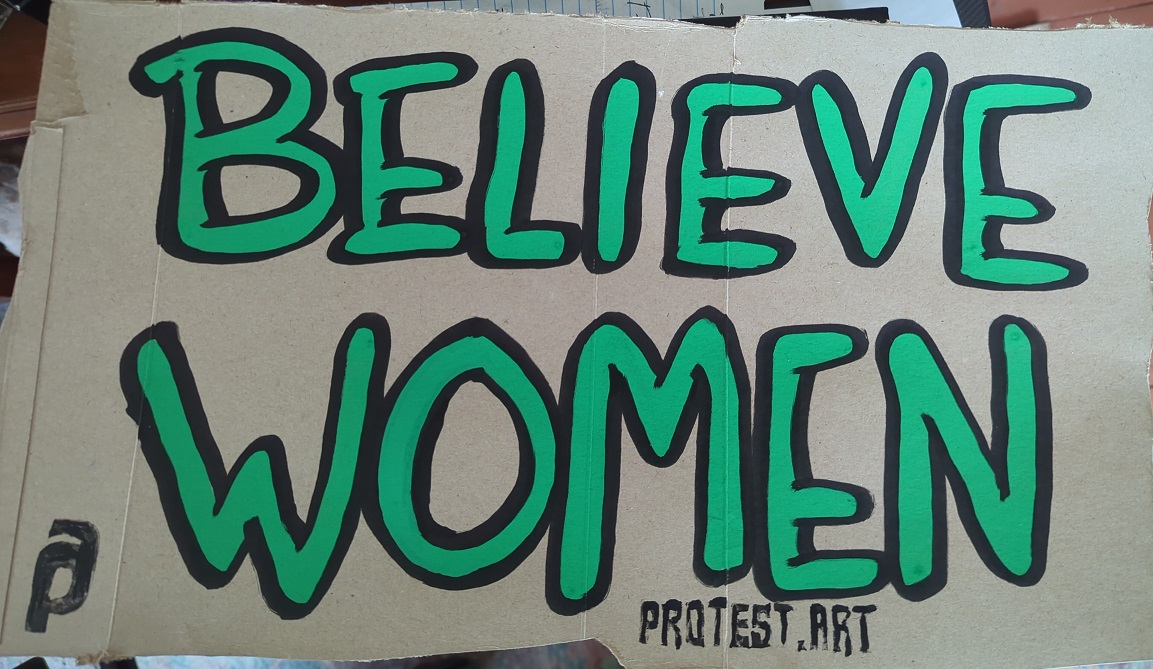 BELIEVE
WOMEN
PROTEST.ART